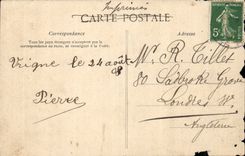 Imprimés
CARTE POSTALE
Correspondance
Adresse
Tous les pays étrangers n'acceptent pas la
correspondance au recto, se renseigner à la Poste
Vrigne le 24 août
08
Pierre
Mr. R. Tillet
80 Ladbroke Grove
Londres W.
Angleterre
5